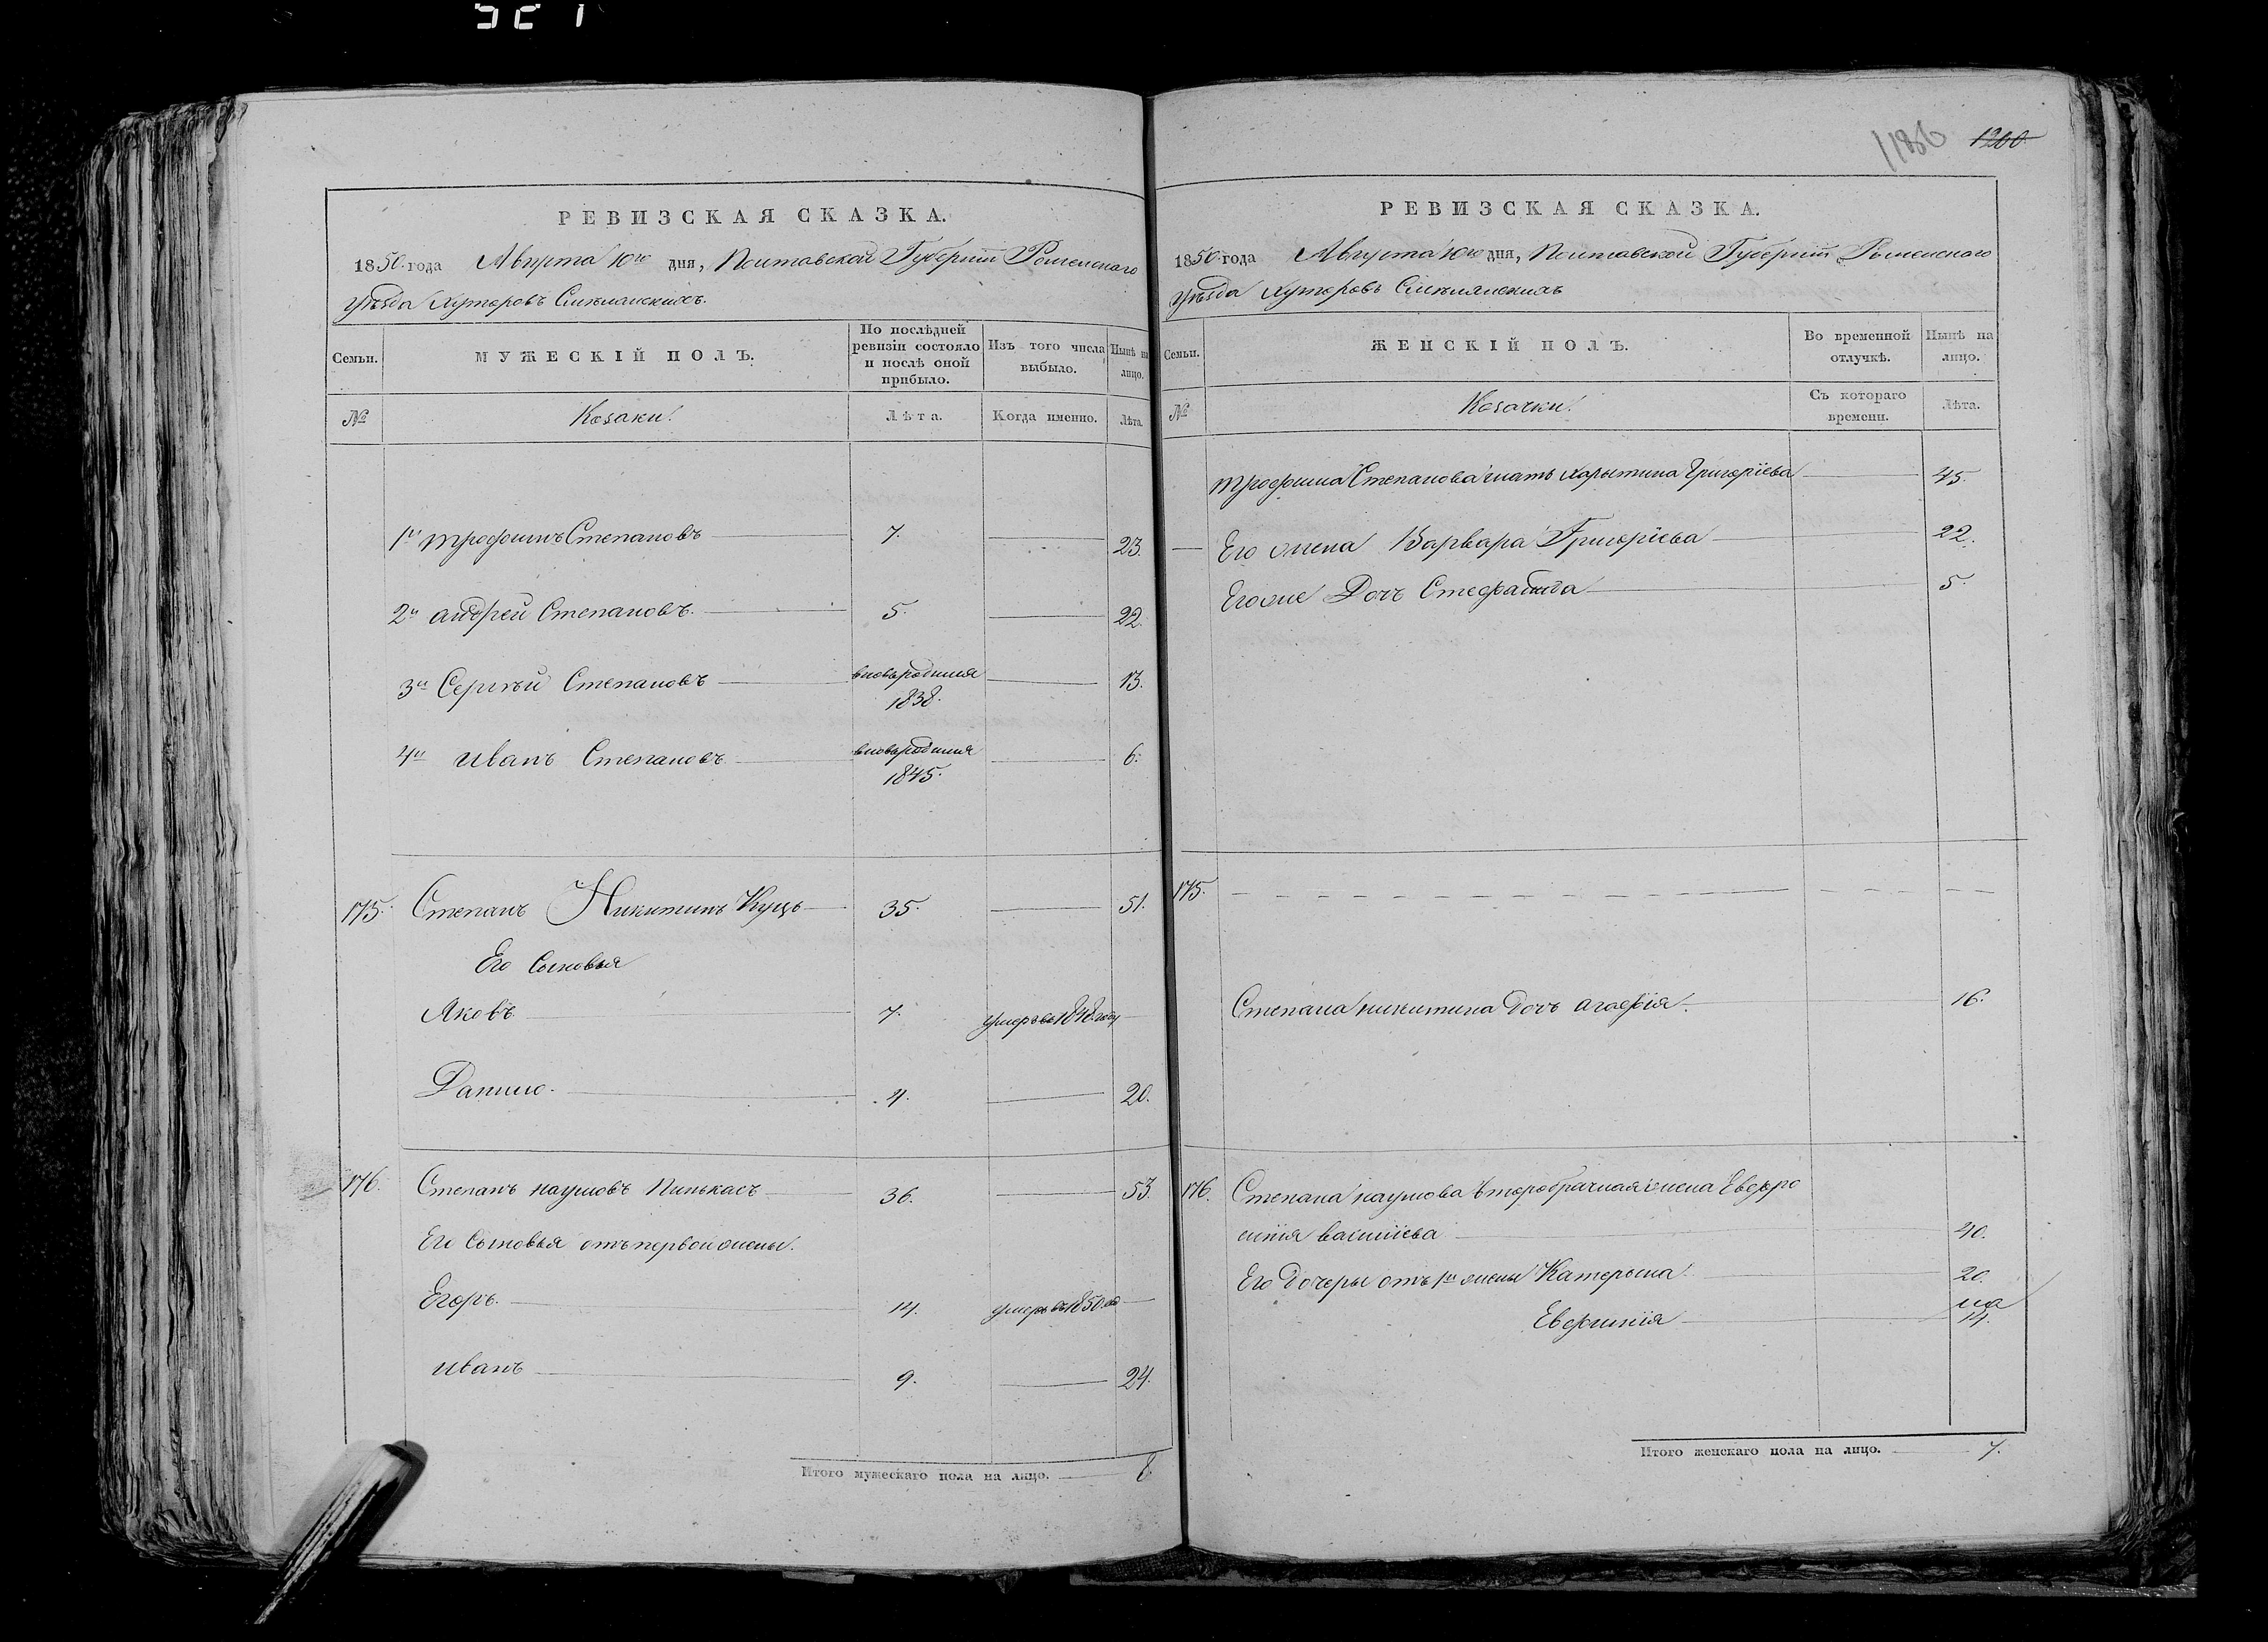 1186 1200
РЕВИЗСКАЯ СКАЗКА.
1850 года Августа 10го дня, Полтавской Губерніи Роменскаго
Уѣзда Хуторовъ Смѣлянскихъ.
Семьи.
МУЖЕСКІЙ ПОЛЪ.
По послѣдней ревизіи состояло и послѣ оной прибыло.
Изъ того числа выбыло.
Нынѣ на лицо.
№
Козаки.
Лѣта.
Когда именно.
Лѣта.
1й Трофимъ Степановъ 7. 23.
2й Андрей Степановъ 5. 22.
3й Сергѣй Степановъ 13.
1838.
4й Иванъ Степановъ 6.
1845.
175. Степанъ Никитинъ Куць 35. 51.
Его Сыновья
Яковъ 7. умеръ въ 1848 году
Данило 4. 20.
176. Степанъ Наумовъ Пинькасъ 36. 53.
Его Сыновья отъ первой жены.
Егоръ. 14. умеръ въ 1850
Иванъ 9. 24.
Итого мужескаго пола на лицо. 8.
РЕВИЗСКАЯ СКАЗКА.
1850 года Августа 10го дня, Полтавской Губерніи Роменскаго
Уѣзда Хуторовъ Смѣлянскихъ
Семьи.
ЖЕНСКІЙ ПОЛЪ.
Во временной отлучкѣ.
Нынѣ на лицо.
№
Козачки.
Съ котораго времени.
Лѣта.
Трофима Степанова мать Харытина Григоріева 45.
Его жена Варвара Григоріева 22.
Его же Дочь Стефанида 5.
175.
Степана Никитина Дочь Агафія. 16.
176. Степана Наумова второбрачная жена Евфро
синія Василіева 40.
Его Дочеры отъ 1й жены Катерына 20.
Евфимія 14.
Итого женскаго пола на лицо. 7.